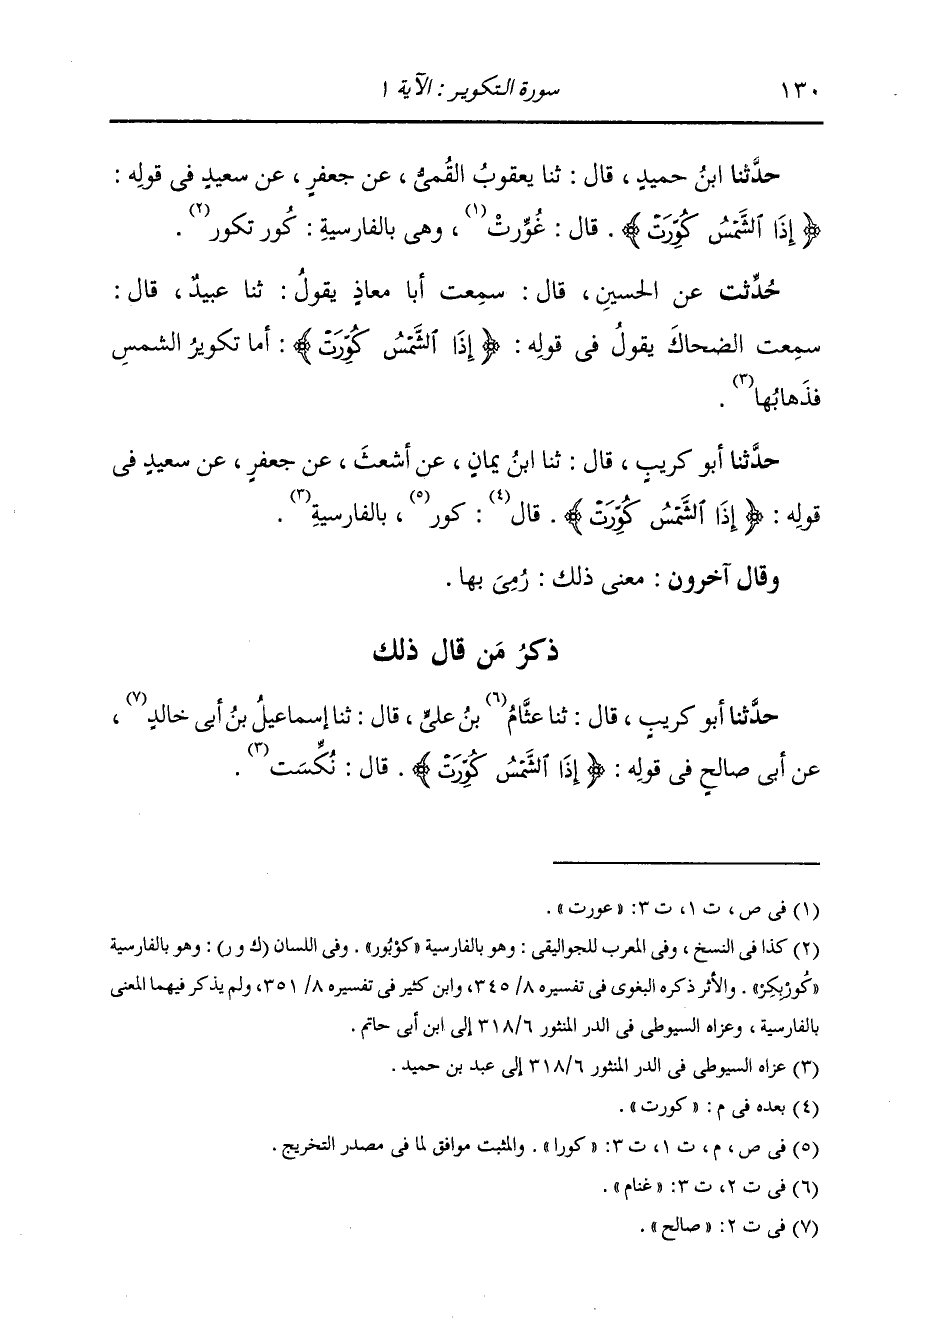 ١٣٠ سورة التكوير : الآية ١
حدَّثنا ابنُ حميدٍ ، قال : ثنا يعقوبُ القُمىُّ ، عن جعفرٍ ، عن سعيدٍ فى قولِه :
﴿ إِذَا ٱلشَّمْسُ كُوِّرَتْ ﴾ . قال : غُوِّرتْ(١) ، وهى بالفارسيةِ : كُور تكور(٢) .
حُدِّثت عن الحسينِ ، قال : سمِعت أبا معاذٍ يقولُ : ثنا عبيدٌ ، قال :
سمِعت الضحاكَ يقولُ فى قولِه : ﴿ إِذَا ٱلشَّمْسُ كُوِّرَتْ ﴾ : أما تكويرُ الشمسِ
فذَهابُها(٣) .
حدَّثنا أبو كريبٍ ، قال : ثنا ابنُ يمانٍ ، عن أشعثَ ، عن جعفرٍ ، عن سعيدٍ فى
قولِه : ﴿ إِذَا ٱلشَّمْسُ كُوِّرَتْ ﴾ . قال(٤) : كور(٥) ، بالفارسيةِ(٣) .
وقال آخرون : معنى ذلك : رُمِىَ بها .
ذكرُ مَن قال ذلك
حدَّثنا أبو كريبٍ ، قال : ثنا عثَّامُ(٦) بنُ علىٍّ ، قال : ثنا إسماعيلُ بنُ أبى خالدٍ(٧) ،
عن أبى صالحٍ فى قولِه : ﴿ إِذَا ٱلشَّمْسُ كُوِّرَتْ ﴾ . قال : نُكِّست(٣) .
(١) فى ص ، ت ١، ت ٣: « عورت » .
(٢) كذا فى النسخ ، وفى المعرب للجواليقى : وهو بالفارسية «كوْبُور» . وفى اللسان (ك و ر) : وهو بالفارسية
«كُورْبِكِرْ» . والأثر ذكره البغوى فى تفسيره ٣٤٥/٨، وابن كثير فى تفسيره ٣٥١/٨، ولم يذكر فيهما المعنى
بالفارسية ، وعزاه السيوطى فى الدر المنثور ٣١٨/٦ إلى ابن أبى حاتم .
(٣) عزاه السيوطى فى الدر المنثور ٣١٨/٦ إلى عبد بن حميد .
(٤) بعده فى م : « كورت » .
(٥) فى ص ، م ، ت ١، ت ٣: « كورا » . والمثبت موافق لما فى مصدر التخريج .
(٦) فى ت ٢، ت ٣: « غنام » .
(٧) فى ت ٢: « صالح » .